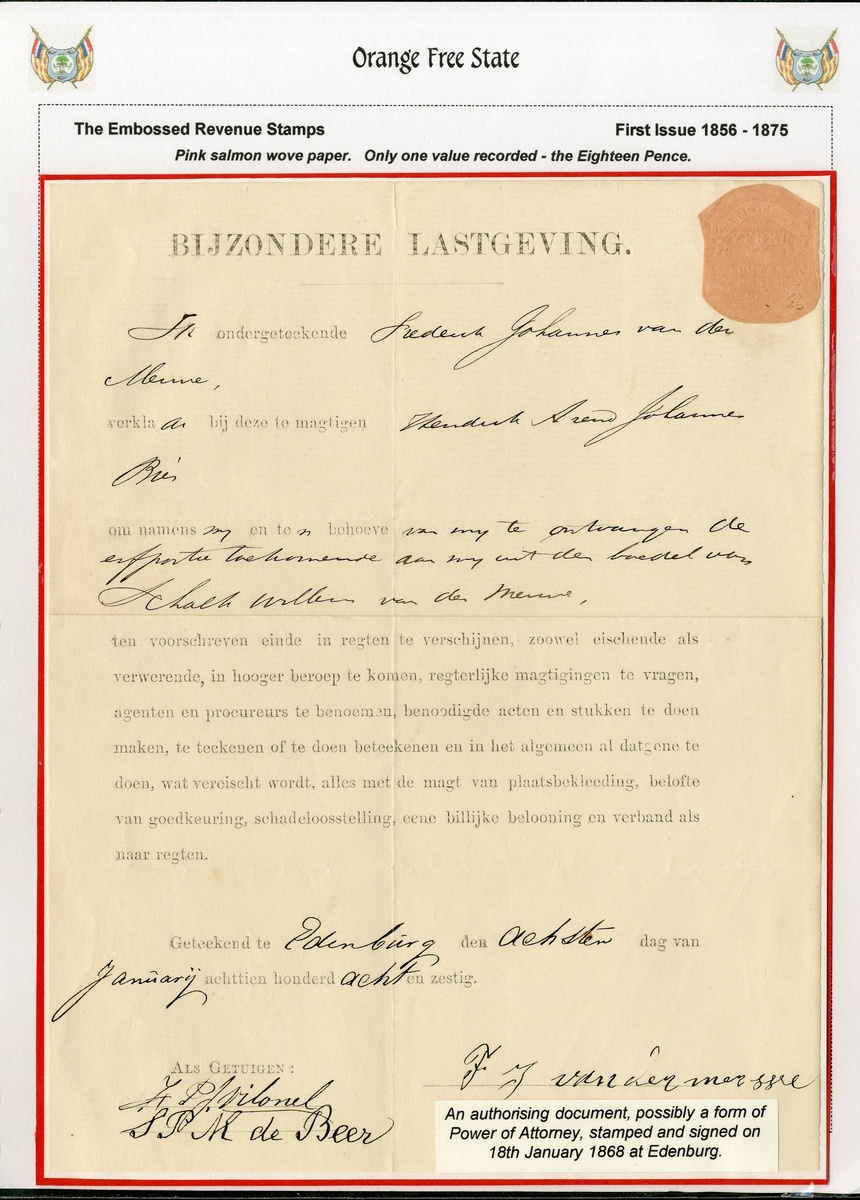 Orange Free State
The Embossed Revenue Stamps First Issue 1856 - 1875
Pink salmon wove paper. Only one value recorded - the Eighteen Pence.
BIJZONDERE LASTGEVING.
Ik ondergeteekende Frederik Johannes van der
Merwe,
verkla ar bij deze te magtigen Hendrik Arend Johannes
om namens my en te n behoeve van my te ontvangen de
erfportie toekomende aan my uit den boedel van
Schalk Willem van der Merwe,
ten voorschreven einde in regten te verschijnen, zoowel eischende als
verwerende, in hooger beroep te komen, regterlijke magtigingen te vragen,
agenten en procureurs te benoemen, benoodigde acten en stukken te doen
maken, te teekenen of te doen beteekenen en in het algemeen al datgene te
doen, wat vereischt wordt, alles met de magt van plaatsbekleeding, belofte
van goedkeuring, schadeloosstelling, eene billijke belooning en verband als
naar regten.
Geteekend te Edenburg den achsten dag van
Januarij achttien honderd acht en zestig.
ALS GETUIGEN:
F J van der
S P M de Beer
An authorising document, possibly a form of
Power of Attorney, stamped and signed on
18th January 1868 at Edenburg.